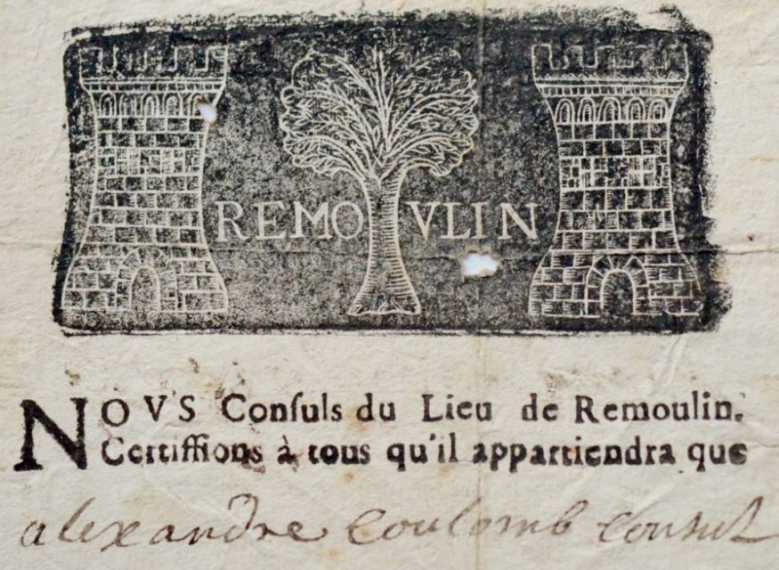 REMOVLIN
NOVS Conſuls du Lieu de Remoulin,
Certiffions à tous qu'il appartiendra que
alexandre coulomb consul